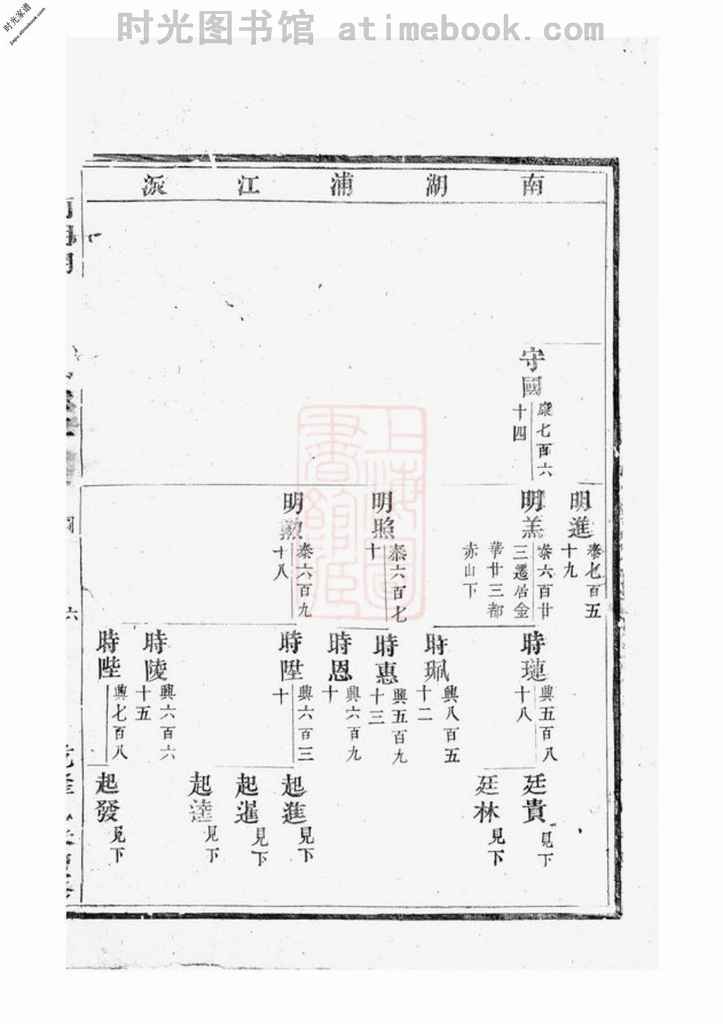 时光图书馆 atimebook.com
时光家谱
南湖浦江派
守國
康七百六
十四
明進
泰七百五
十九
明羔
泰六百廿
三遷居金
華廿三都
赤山下
明照
泰六百七
十
明勲
泰六百九
十八
時璉
興五百八
十八
時珮
興八百五
十二
時惠
興五百九
十三
時恩
興六百九
十
時陞
興六百三
十
時陵
興六百六
十五
時陛
興七百八
廷貴
見下
廷林
見下
起進
見下
起暹
見下
起達
見下
起發
見下
六
上海圖書館藏